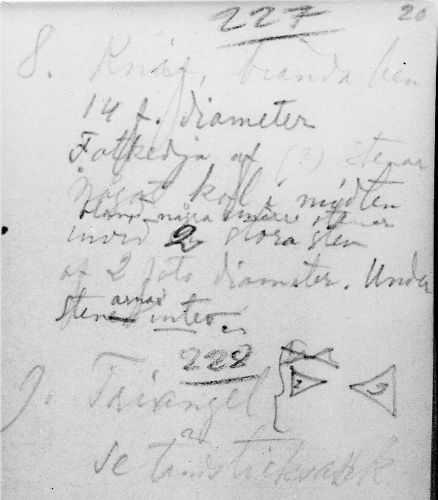 227 20
8. Knif, brända ben
14 f. diameter
Fotkedja af (?) stenar
något kol i midten
några mindre stenar
invid 2 stora sten
af 2 fots diameter. Under
stenarnas intet.
228
9. Triangel
se